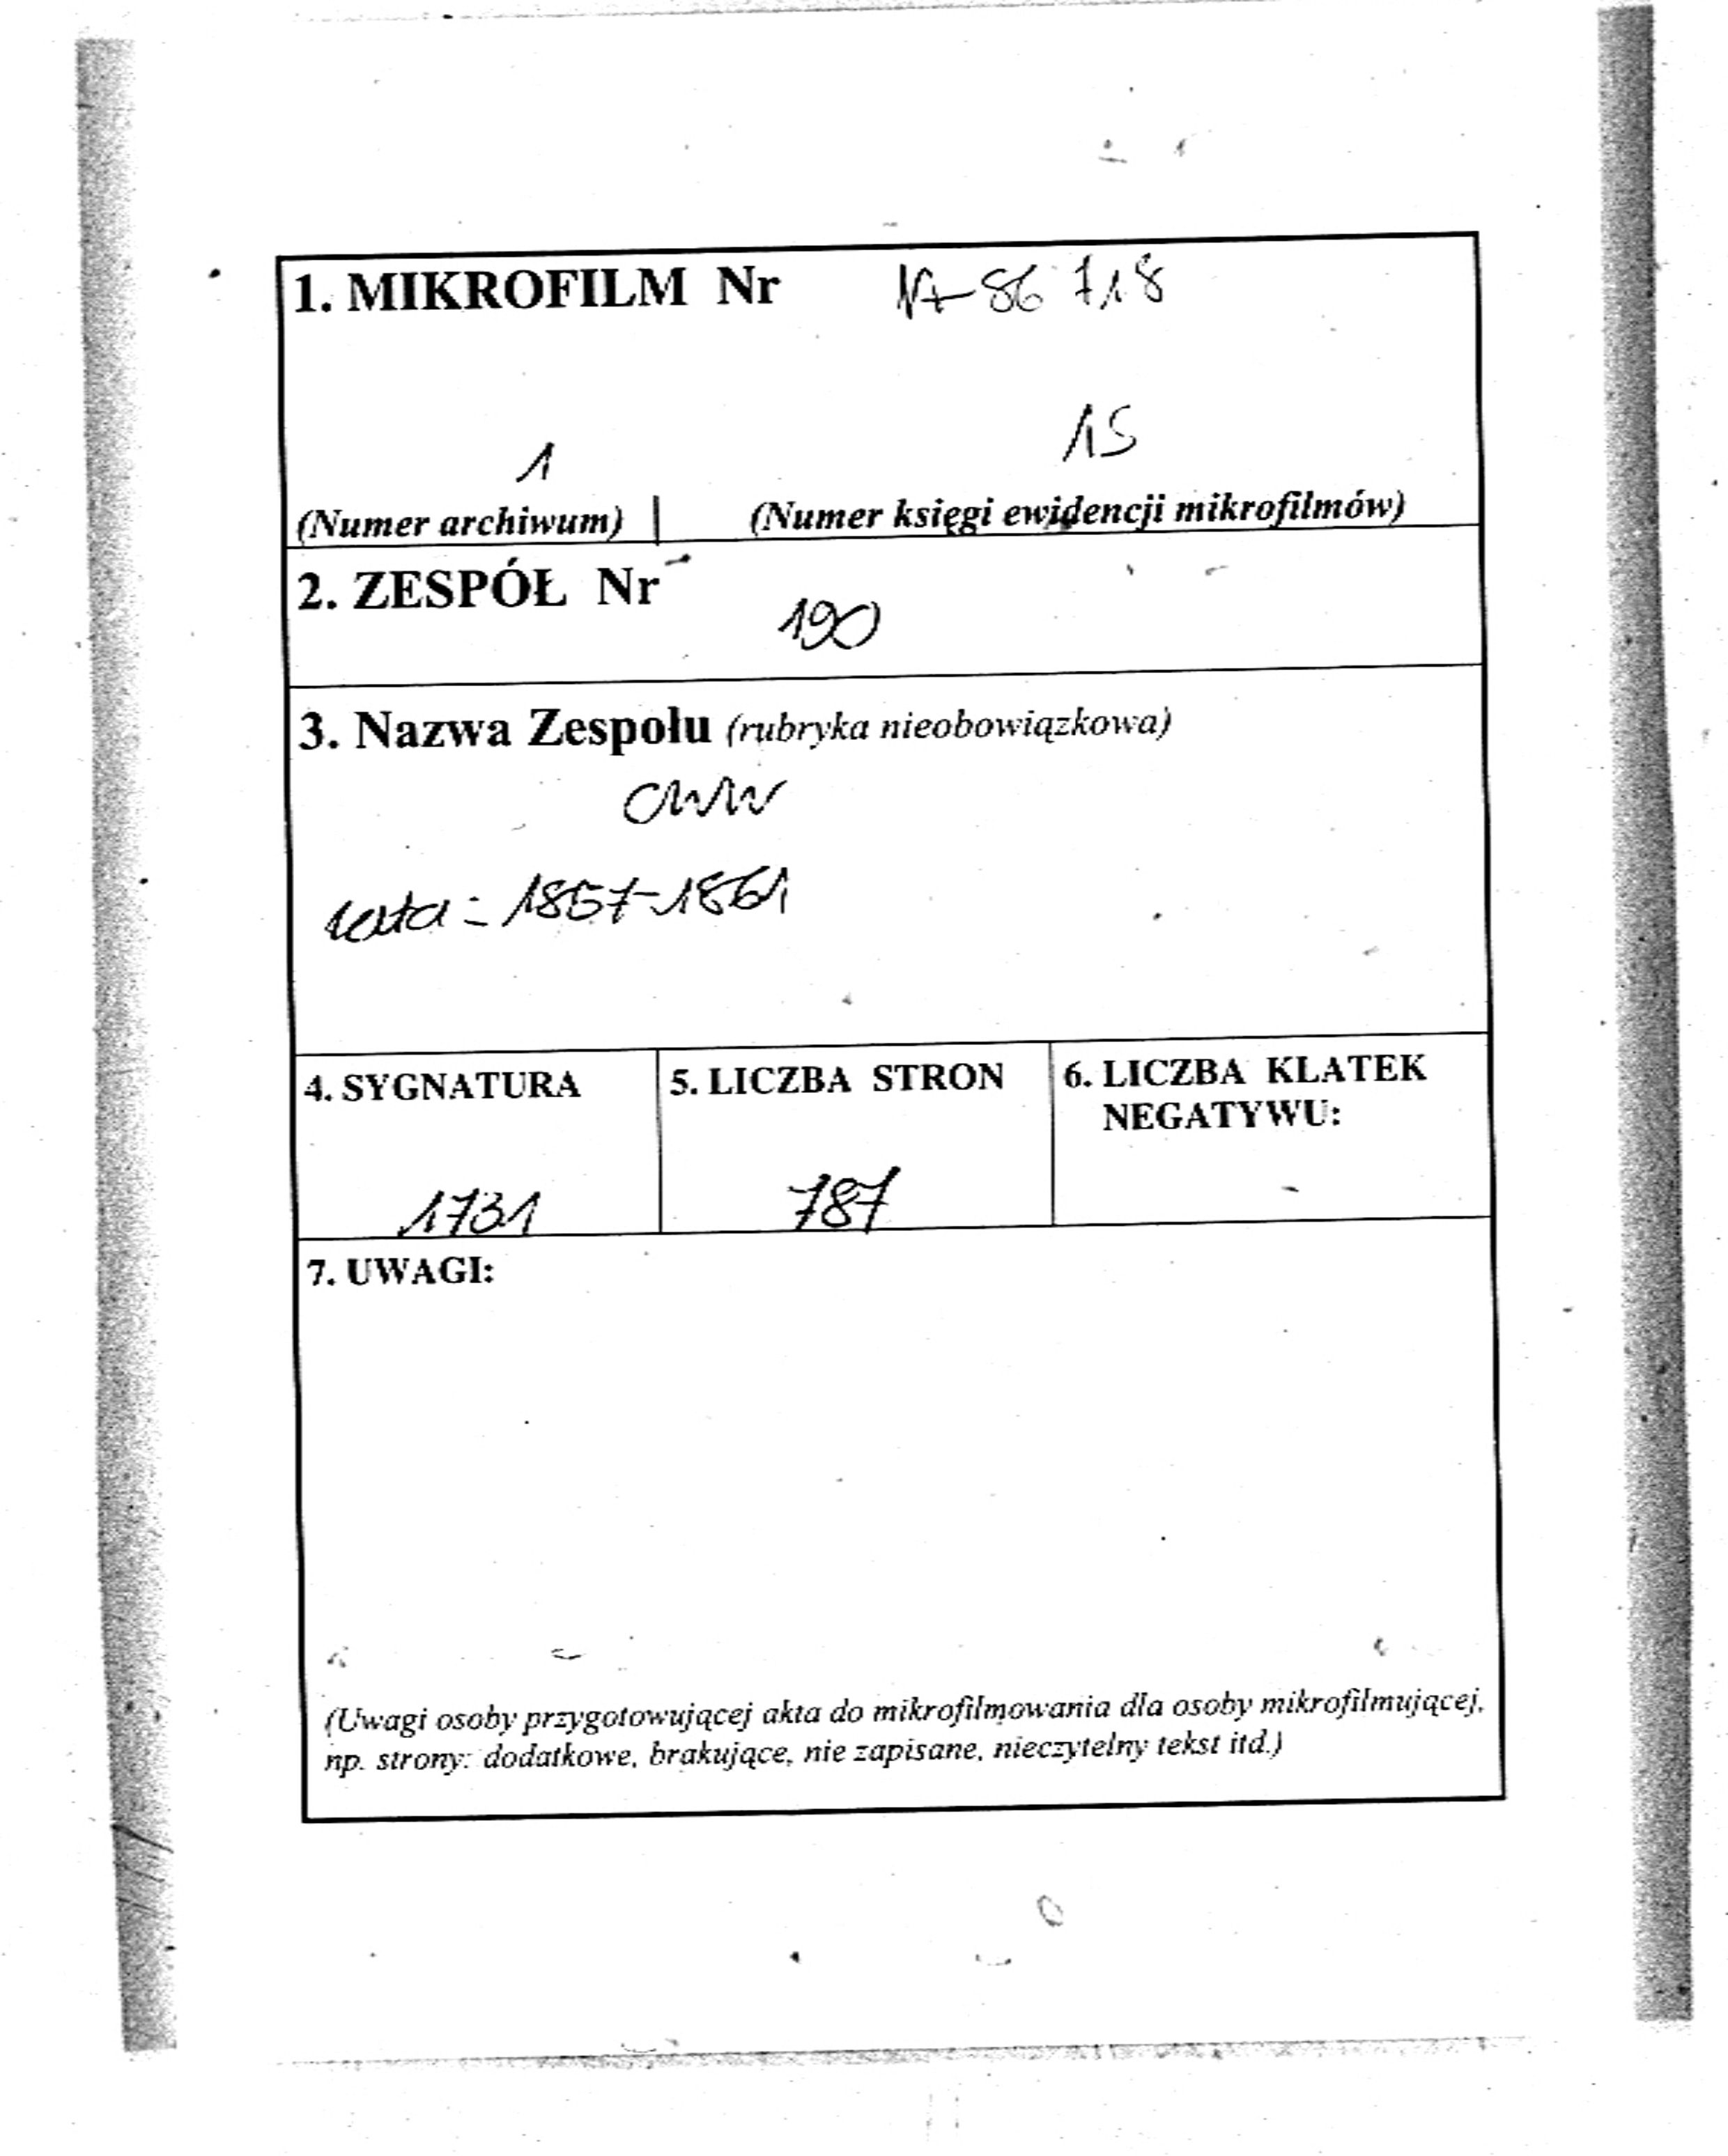 1. MIKROFILM Nr A-86 718
1 15
(Numer archiwum) | (Numer księgi ewidencji mikrofilmów)
2. ZESPÓŁ Nr
190
3. Nazwa Zespołu (rubryka nieobowiązkowa)
CWW
lata - 1857-1861
4. SYGNATURA
1731
5. LICZBA STRON
787
6. LICZBA KLATEK
NEGATYWU:
-
7. UWAGI:
(Uwagi osoby przygotowującej akta do mikrofilmowania dla osoby mikrofilmującej,
np. strony: dodatkowe, brakujące, nie zapisane, nieczytelny tekst itd.)